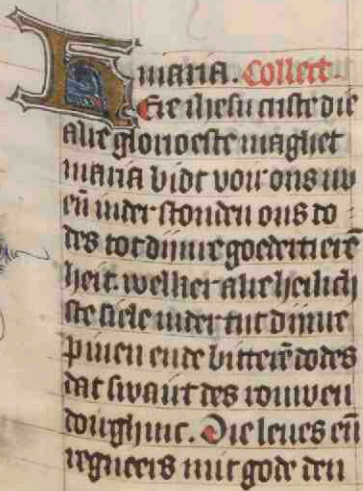 maria. Collect.
Here ihesu criste die
alre glorioeste maghet
maria bidt voir ons nv
eñ inder stonden ons do
des tot dijnre goedertierē
heit. welker alre heilich
ste siele inder tijt dijnre
pinen ende bitterē dodes
dat swairt des rouwen
doirghinc. Die leues eñ
regneers mit gode den